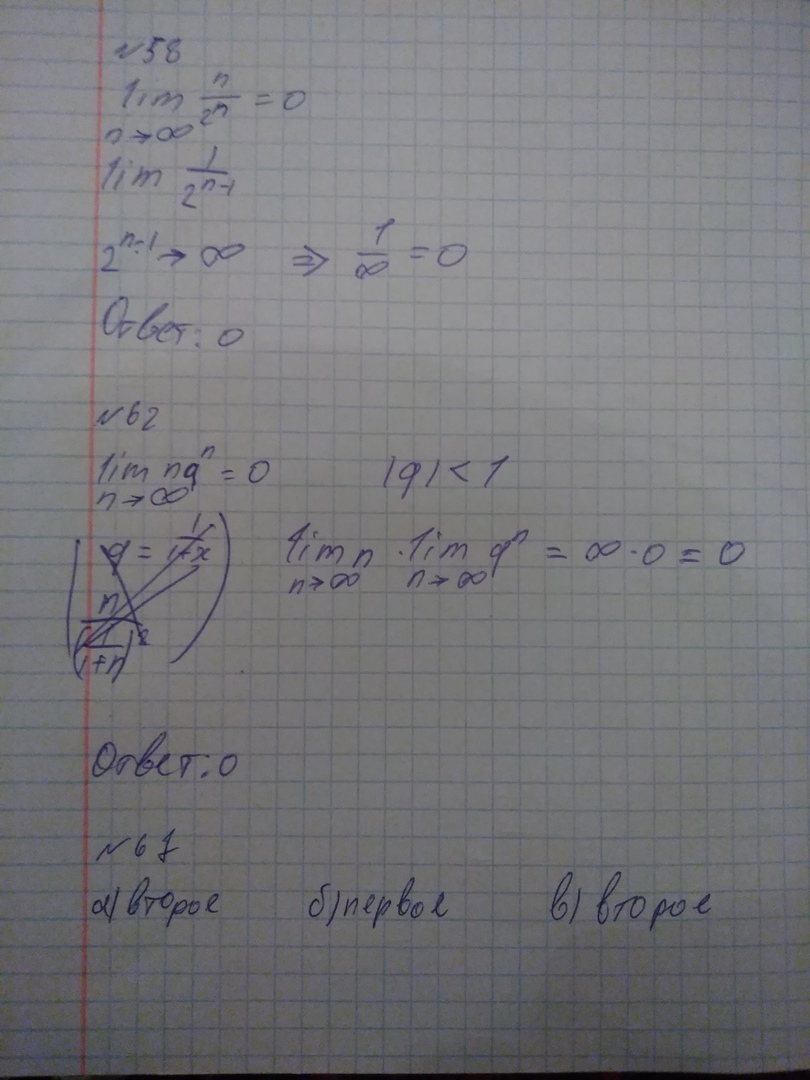 №58
lim n/2ⁿ = 0
n→∞
lim 1/2ⁿ⁻¹
2ⁿ⁻¹ → ∞ ⇒ 1/∞ = 0
Ответ: 0
№62
lim nqⁿ = 0 |q| < 1
n→∞
lim n · lim qⁿ = ∞ · 0 = 0
n→∞ n→∞
Ответ: 0
№67
а) второе б) первое в) второе